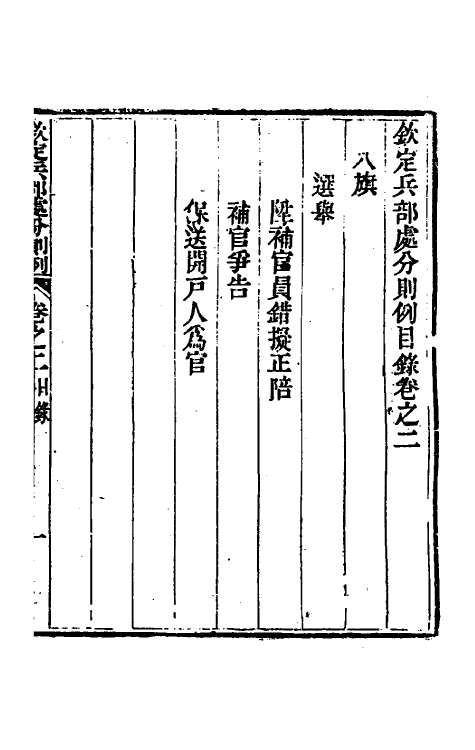 欽定兵部處分則例目錄卷之二
八旗
選舉
陞補官員錯擬正陪
補官爭告
保送開戸人爲官
欽定兵部處分則例 卷之二 目錄 一